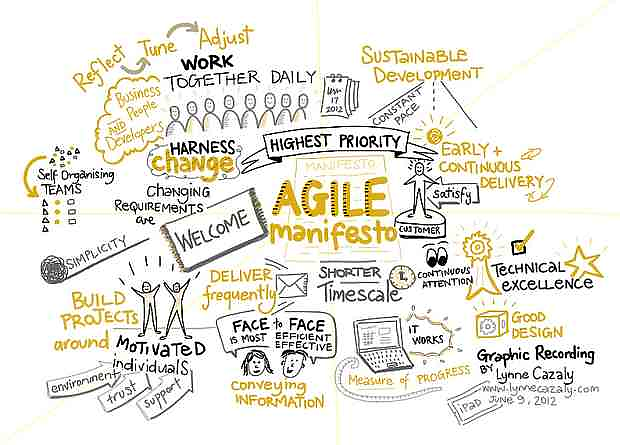 Reflect
Tune
Adjust
WORK
TOGETHER DAILY
Business
People
AND
Developers
17
2012
SUSTAINABLE
DEVELOPMENT
CONSTANT
PACE
HARNESS
change
HIGHEST PRIORITY
EARLY +
CONTINUOUS
DELIVERY
satisfy
CUSTOMER
Self Organising
TEAMS
CHANGING
REQUIREMENTS
are
WELCOME
MANIFESTO
AGILE
manifesto
SIMPLICITY
DELIVER
frequently
SHORTER
Timescale
CONTINUOUS
ATTENTION
TECHNICAL
excellence
BUILD
PROJECTS
around
MOTIVATED
individuals
environment
trust
support
FACE to FACE
IS MOST EFFICIENT
EFFECTIVE
conveying
INFORMATION
IT
WORKS
Measure of PROGRESS
GOOD
DESIGN
Graphic Recording
BY Lynne Cazaly
www.lynnecazaly.com
iPad
JUNE 9, 2012